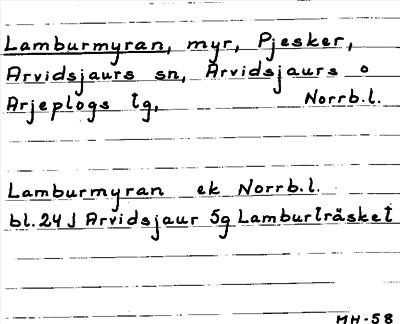 Lamburmyran, myr, Pjesker,
Arvidsjaurs sn, Arvidsjaurs o
Arjeplogs tg, Norrb.l.
Lamburmyran ek Norrb.l.
bl. 24 J Arvidsjaur 5g Lamburträsket
MH-58